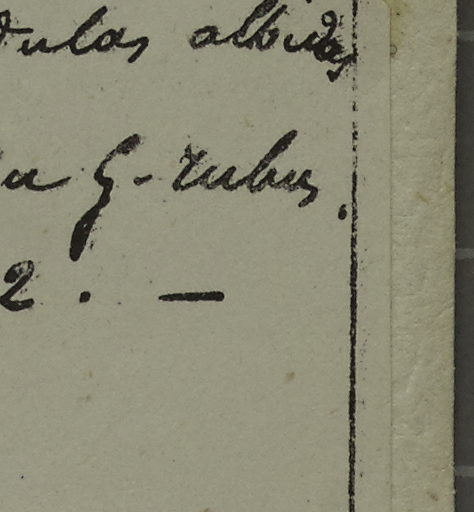 dulas albidas
a G. rubus.
2. —